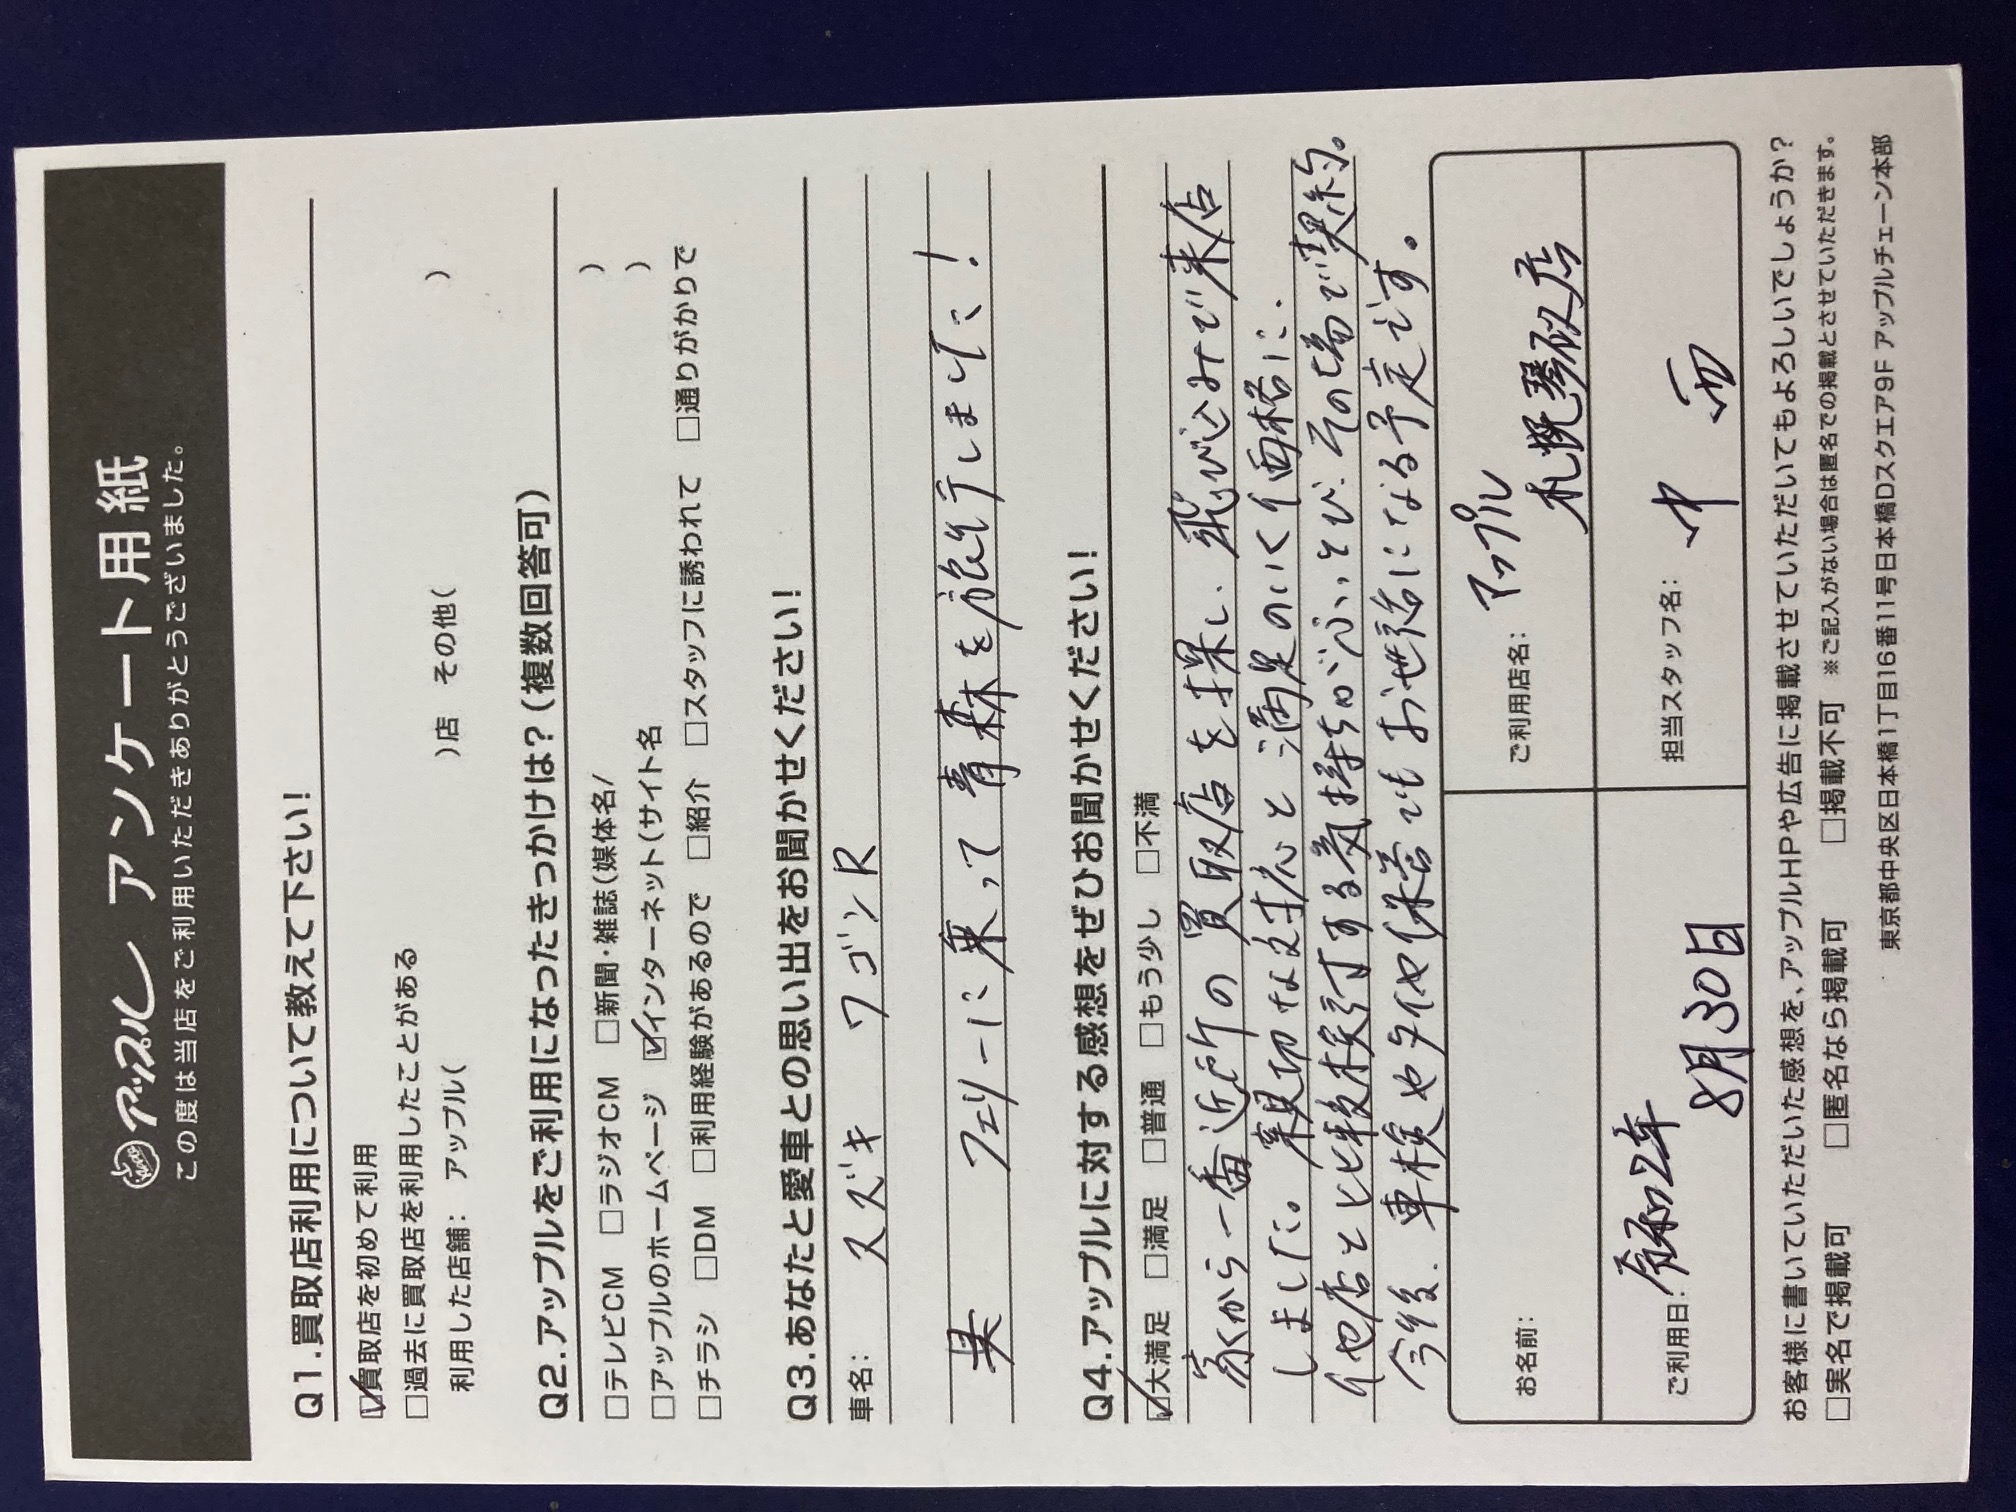 アップル アンケート用紙
この度は当店をご利用いただきありがとうございました。
Q1.買取店利用について教えて下さい!
☑買取店を初めて利用
□過去に買取店を利用したことがある
利用した店舗: アップル( )店 その他( )
Q2.アップルをご利用になったきっかけは?(複数回答可)
□テレビCM □ラジオCM □新聞・雑誌(媒体名/ )
□アップルのホームページ ☑インターネット(サイト名 )
□チラシ □DM □利用経験があるので □紹介 □スタッフに誘われて □通りがかりで
Q3.あなたと愛車との思い出をお聞かせください!
車名: スズキ ワゴンR
フェリーに乗って青森を旅行しました!
Q4.アップルに対する感想をぜひお聞かせください!
☑大満足 □満足 □普通 □もう少し □不満
家から一番近所の買取店を探し、飛び込みで来店
しました。親切な対応と満足のいく価格に、
他店と比較検討する気持ちがふっとび、その場で契約。
今後、車検や夕イヤ保管でもお世話になる予定です。
お名前:
ご利用店名: アップル
札幌琴似店
ご利用日: 令和2年
8月30日
担当スタッフ名: 中西
お客様に書いていただいた感想を、アップルHPや広告に掲載させていただいてもよろしいでしょうか?
□実名で掲載可 □匿名なら掲載可 □掲載不可 ※ご記入がない場合は匿名での掲載とさせていただきます。
東京都中央区日本橋1丁目16番11号日本橋Dスクエア9F アップルチェーン本部